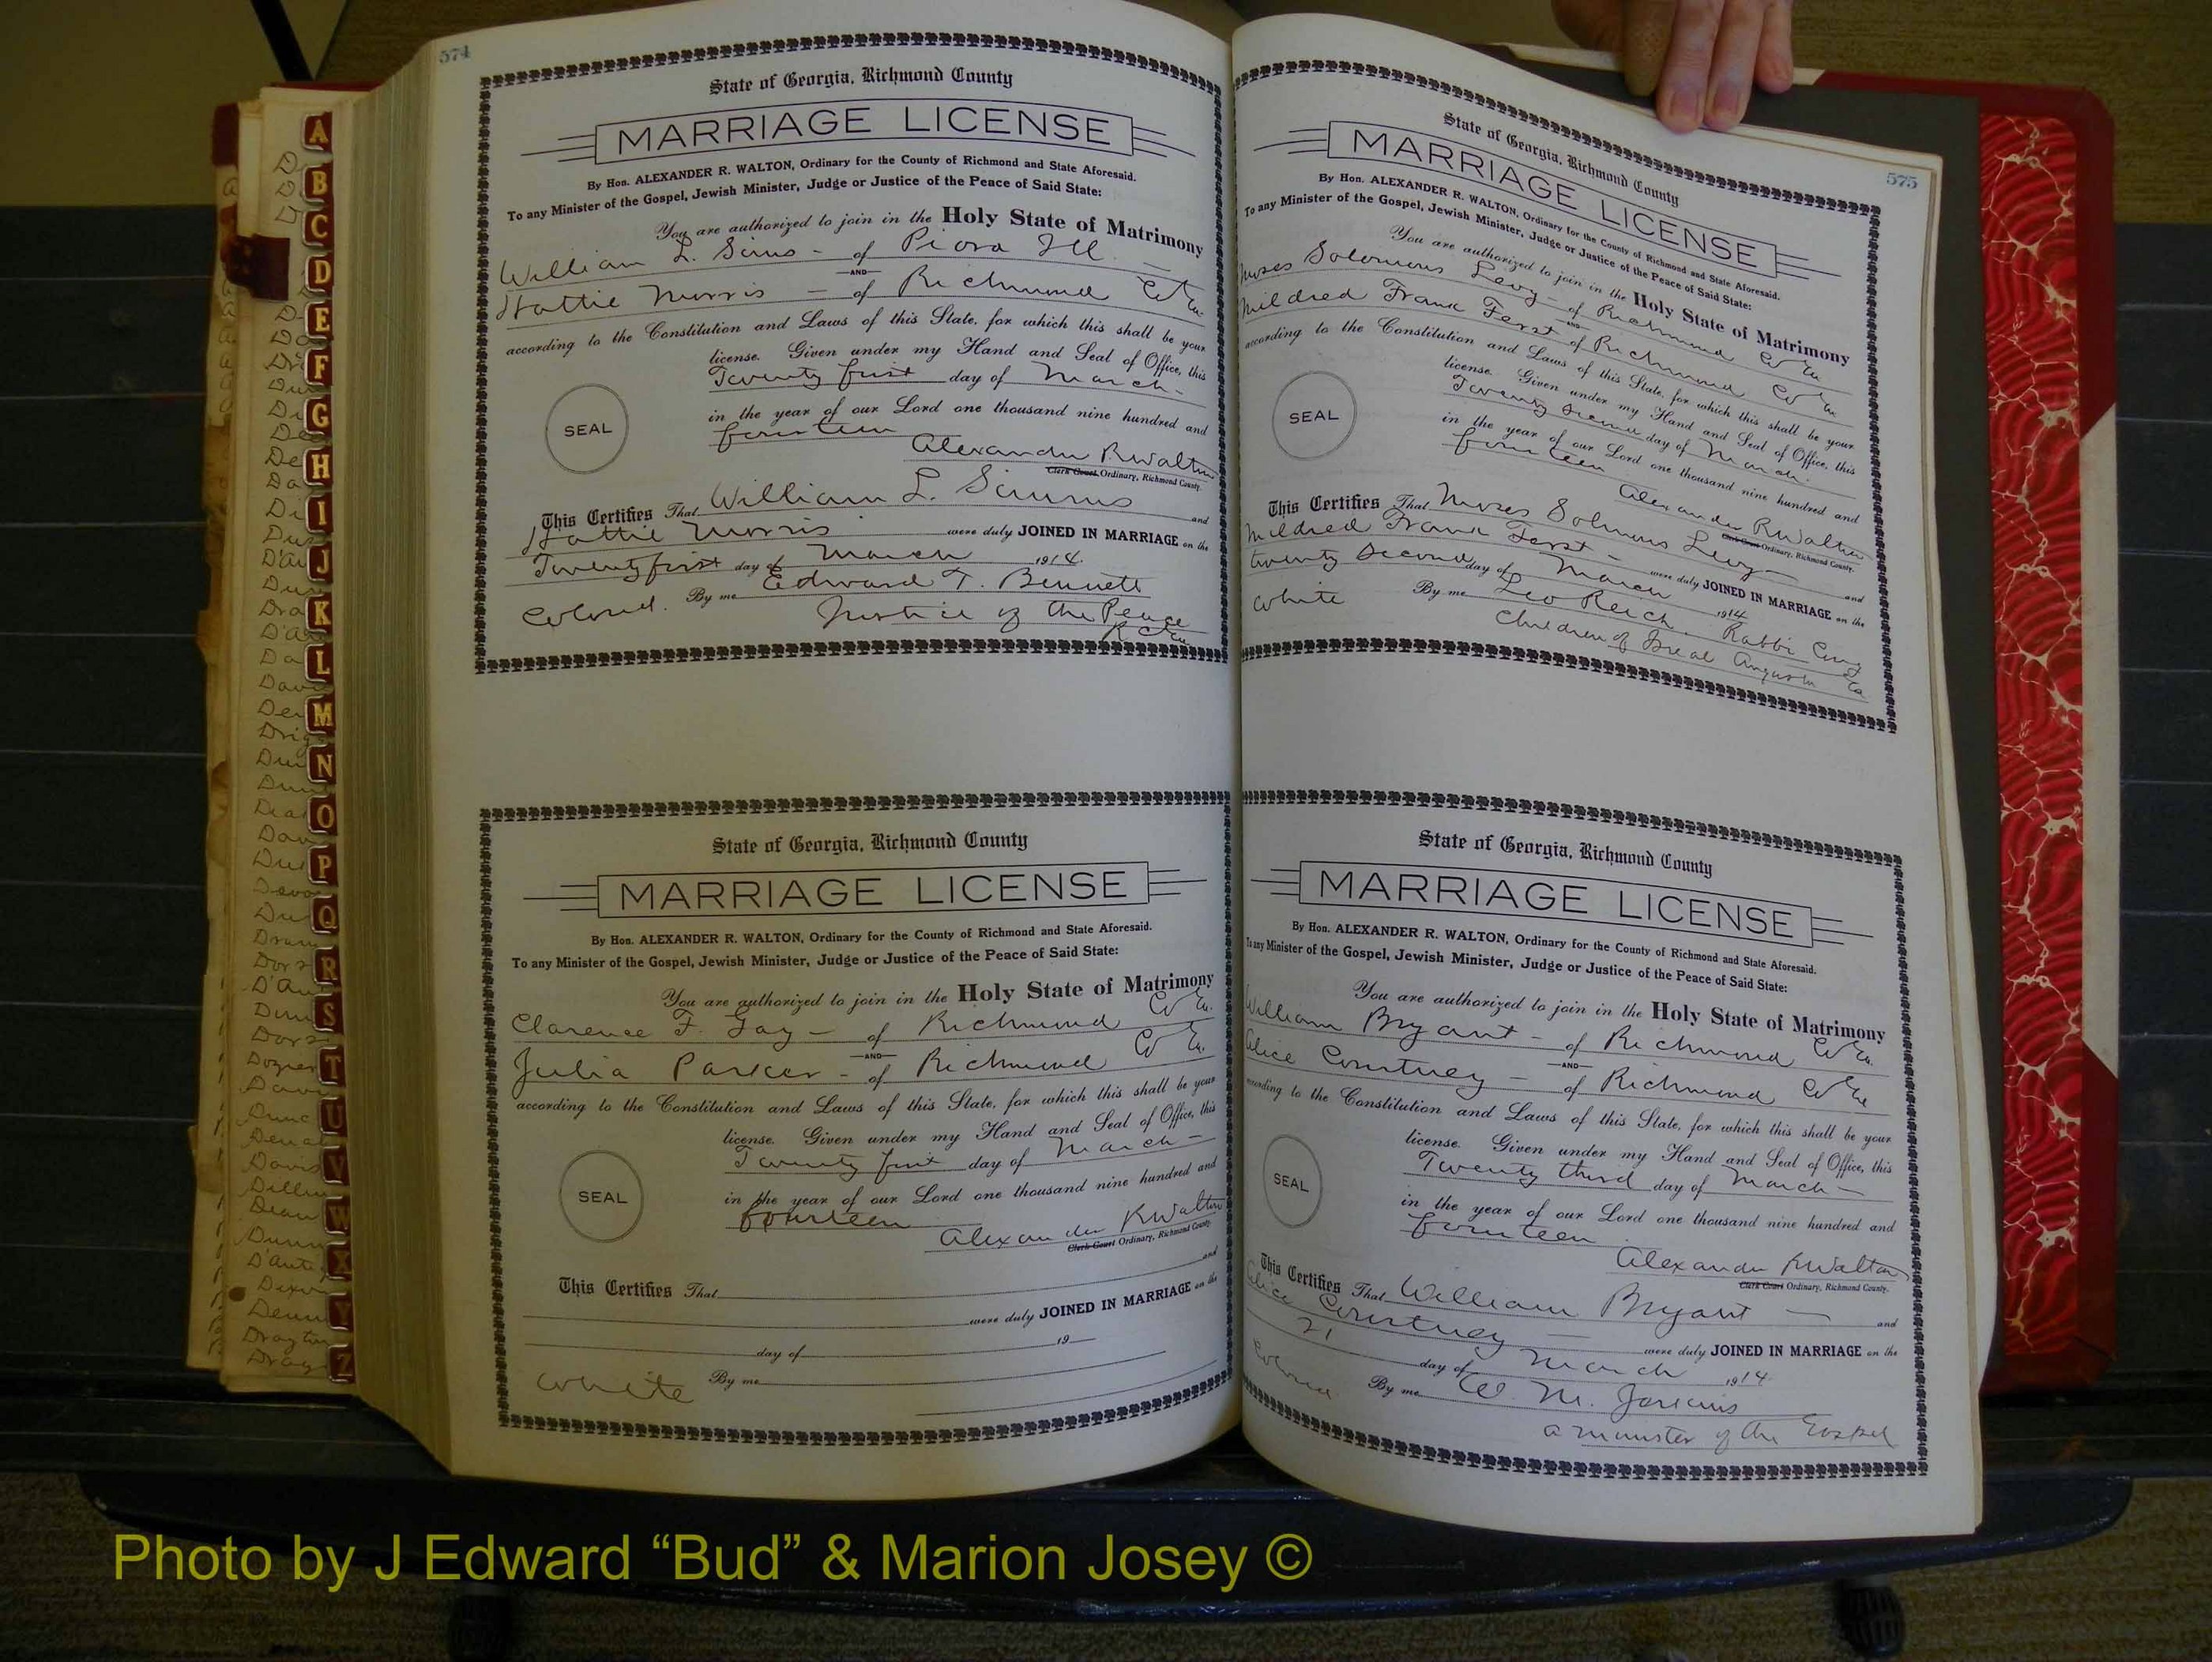 574
State of Georgia, Richmond County
MARRIAGE LICENSE
By Hon. ALEXANDER R. WALTON, Ordinary for the County of Richmond and State Aforesaid.
To any Minister of the Gospel, Jewish Minister, Judge or Justice of the Peace of Said State:
You are authorized to join in the Holy State of Matrimony
William L. Sims - of Ill.
AND
Hattie Morris - of Richmond Co Ga.
according to the Constitution and Laws of this State, for which this shall be your
license. Given under my Hand and Seal of Office, this
Twenty first day of March -
in the year of our Lord one thousand nine hundred and
fourteen
SEAL
Alexander R Walton
Clerk Court Ordinary, Richmond County.
This Certifies That William L. Simms and
Hattie Morris were duly JOINED IN MARRIAGE on the
Twenty first day of March 1914.
Colored. By me Edward T. Bennett
Justice of the Peace
R C Ga
State of Georgia, Richmond County
MARRIAGE LICENSE
By Hon. ALEXANDER R. WALTON, Ordinary for the County of Richmond and State Aforesaid.
To any Minister of the Gospel, Jewish Minister, Judge or Justice of the Peace of Said State:
You are authorized to join in the Holy State of Matrimony
Clarence F. - of Richmond Co Ga.
AND
Julia Parker - of Richmond Co Ga.
according to the Constitution and Laws of this State, for which this shall be your
license. Given under my Hand and Seal of Office, this
Twenty first day of March -
in the year of our Lord one thousand nine hundred and
fourteen
SEAL
Alexander R Walton
Clerk Court Ordinary, Richmond County.
This Certifies That and
were duly JOINED IN MARRIAGE on the
day of 19
White By me
575
State of Georgia, Richmond County
MARRIAGE LICENSE
By Hon. ALEXANDER R. WALTON, Ordinary for the County of Richmond and State Aforesaid.
To any Minister of the Gospel, Jewish Minister, Judge or Justice of the Peace of Said State:
You are authorized to join in the Holy State of Matrimony
Moses Solomons Levy - of Richmond Co Ga.
AND
Mildred Frank Ferst of Richmond Co Ga
according to the Constitution and Laws of this State, for which this shall be your
license. Given under my Hand and Seal of Office, this
Twenty second day of March
in the year of our Lord one thousand nine hundred and
fourteen
SEAL
Alexander R Walton
Clerk Court Ordinary, Richmond County.
This Certifies That Moses Solomons Levy - and
Mildred Frank Ferst - were duly JOINED IN MARRIAGE on the
twenty second day of March 1914
White By me Leo Reich. Rabbi Cong
Children of Augusta Ga
State of Georgia, Richmond County
MARRIAGE LICENSE
By Hon. ALEXANDER R. WALTON, Ordinary for the County of Richmond and State Aforesaid.
To any Minister of the Gospel, Jewish Minister, Judge or Justice of the Peace of Said State:
You are authorized to join in the Holy State of Matrimony
William Bryant - of Richmond Co Ga.
AND
Alice Courtney - of Richmond Co Ga
according to the Constitution and Laws of this State, for which this shall be your
license. Given under my Hand and Seal of Office, this
Twenty third day of March -
in the year of our Lord one thousand nine hundred and
fourteen
SEAL
Alexander R Walton
Clerk Court Ordinary, Richmond County.
This Certifies That William Bryant - and
Alice Courtney - were duly JOINED IN MARRIAGE on the
21 day of March 1914.
Colored By me W. M.
a minister of the Gospel
A
B
C
D
E
F
G
H
I
J
K
L
M
N
O
P
Q
R
S
T
U
V
W
X
Y
Z
Photo by J Edward “Bud” & Marion Josey ©